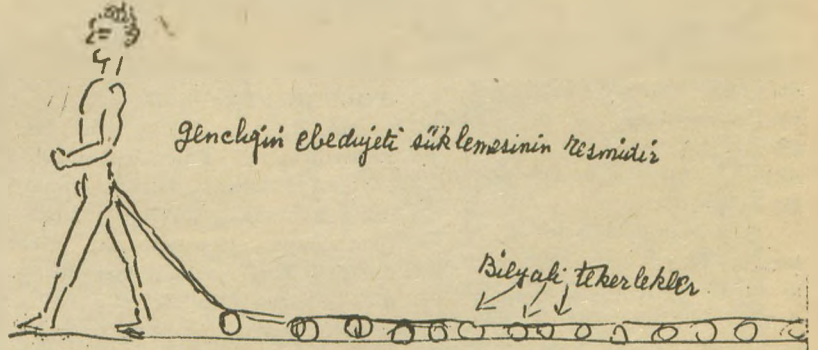 Gençliğin ebediyeti süklemesinin resmidir
Bilyalı tekerlekler